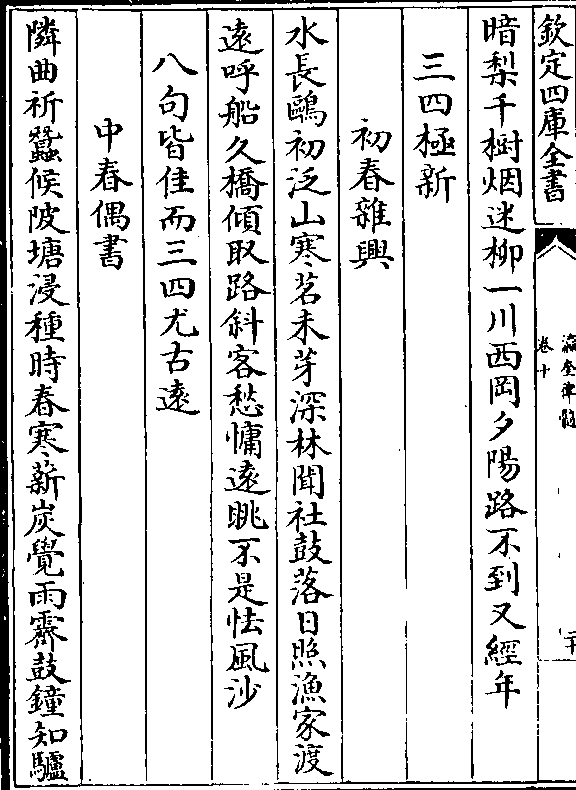 欽定四庫全書
瀛奎律髓
卷十
二十
暗梨千樹烟迷柳一川西岡夕陽路不到又經年
三四極新
初春雜興
水長鷗初泛山寒茗未芽深林聞社鼓落日照漁家渡
遠呼船久橋傾取路斜客愁慵遠眺不是怯風沙
八句皆佳而三四尤古遠
中春偶書
憐曲祈蠶候陂塘浸種時春寒薪炭覺雨霽鼓鐘知驢